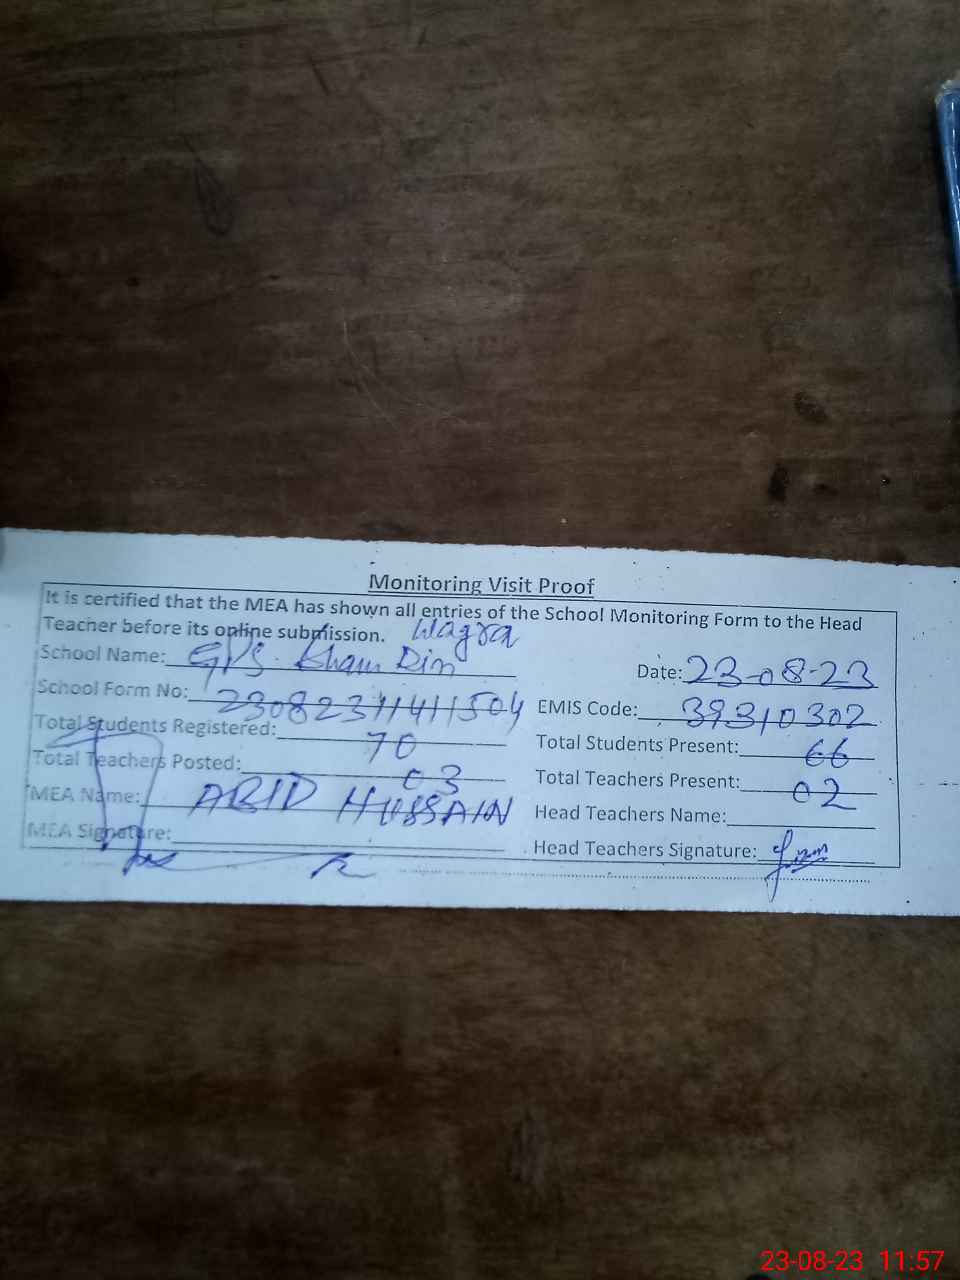 Monitoring Visit Proof
It is certified that the MEA has shown all entries of the School Monitoring Form to the Head
Teacher before its online submission. Wagra
School Name: GPS. Kham Din
Date: 23-08-23
School Form No: 23082311411504
EMIS Code: 39310302
Total Students Registered: 70
Total Students Present: 66
Total Teachers Posted: 03
Total Teachers Present: 02
MEA Name: ABID HUSSAIN
Head Teachers Name:
MEA Signature:
Head Teachers Signature:
23-08-23 11:57